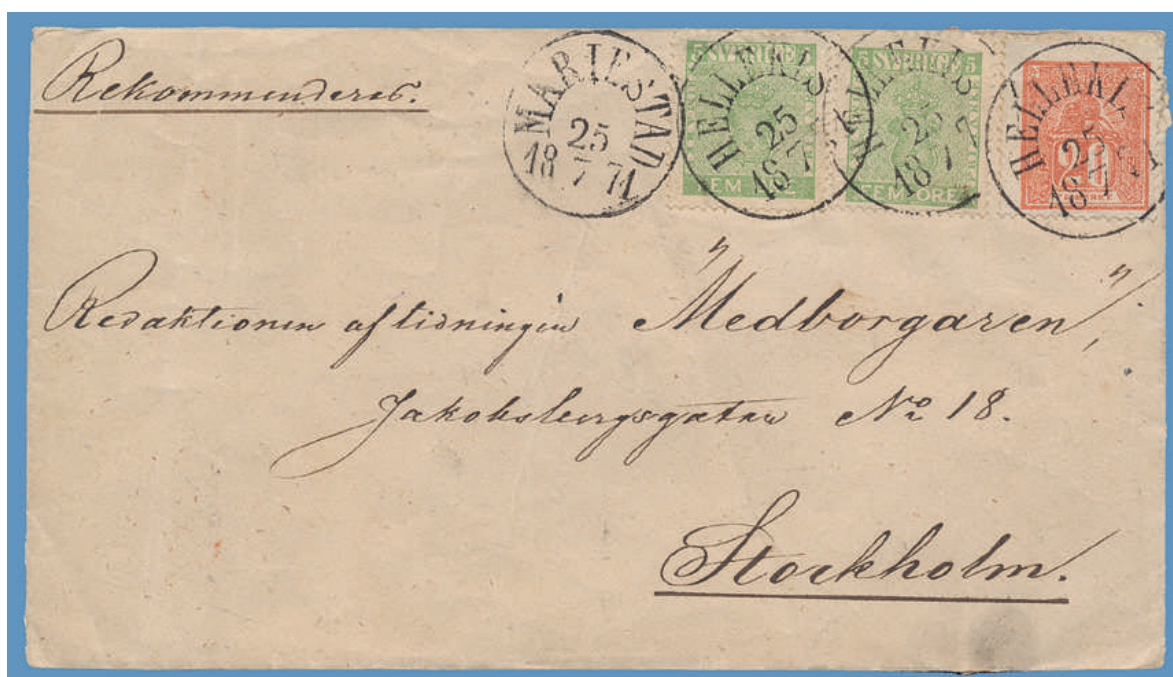 Rekommenderas.
MARIESTAD
25
18 7 71
5 SVERIGE 5
HELLEKIS
25
18 7
FEM ÖRE
5 SVERIGE 5
HELLEKIS
25
18 7
FEM ÖRE
HELLEKIS
25
18 7
20
Redaktionen af tidningen "Medborgaren",
Jakobsbergsgatan No 18.
Stockholm.